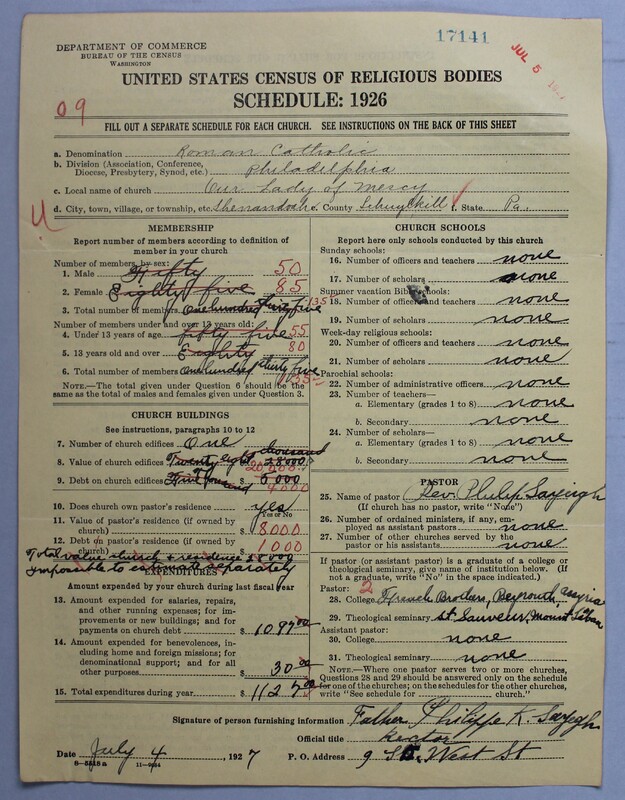 17141
JUL 5
DEPARTMENT OF COMMERCE
BUREAU OF THE CENSUS
WASHINGTON
UNITED STATES CENSUS OF RELIGIOUS BODIES
SCHEDULE: 1926
09
FILL OUT A SEPARATE SCHEDULE FOR EACH CHURCH. SEE INSTRUCTIONS ON THE BACK OF THIS SHEET
a. Denomination Roman Catholic
b. Division (Association, Conference, Diocese, Presbytery, Synod, etc.) Philadelphia
c. Local name of church Our Lady of Mercy
d. City, town, village, or township, etc. Shenandoah e. County Schuylkill f. State Pa.
U
MEMBERSHIP
Report number of members according to definition of member in your church
Number of members, by sex:
1. Male Fifty 50
2. Female Eighty five 85
3. Total number of members One hundred thirty five 135
Number of members under and over 13 years old:
4. Under 13 years of age fifty five 55
5. 13 years old and over Eighty 80
6. Total number of members One hundred thirty five 135
NOTE.—The total given under Question 6 should be the same as the total of males and females given under Question 3.
CHURCH BUILDINGS
See instructions, paragraphs 10 to 12
7. Number of church edifices One
8. Value of church edifices Twenty eight thousand 28000 20,000
9. Debt on church edifices 5000 4000
10. Does church own pastor's residence? yes
Yes or No
11. Value of pastor's residence (if owned by church) $ 8000
12. Debt on pastor's residence (if owned by church) $ 1000
Total value church & residence 28000
impossible to estimate separately
EXPENDITURES
Amount expended by your church during last fiscal year
13. Amount expended for salaries, repairs, and other running expenses; for improvements or new buildings; and for payments on church debt $ 1097 00
14. Amount expended for benevolences, including home and foreign missions; for denominational support; and for all other purposes $ 30 00
15. Total expenditures during year $ 1127 00
CHURCH SCHOOLS
Report here only schools conducted by this church
Sunday schools:
16. Number of officers and teachers none
17. Number of scholars none
Summer vacation Bible schools:
18. Number of officers and teachers none
19. Number of scholars none
Week-day religious schools:
20. Number of officers and teachers none
21. Number of scholars none
Parochial schools:
22. Number of administrative officers none
23. Number of teachers—
a. Elementary (grades 1 to 8) none
b. Secondary none
24. Number of scholars—
a. Elementary (grades 1 to 8) none
b. Secondary none
PASTOR
25. Name of pastor Rev. Philip Sayeigh
(If church has no pastor, write "None")
26. Number of ordained ministers, if any, employed as assistant pastors none
27. Number of other churches served by the pastor or his assistants none
If pastor (or assistant pastor) is a graduate of a college or theological seminary, give name of institution below. (If not a graduate, write "No" in the space indicated.)
Pastor: 2
28. College French Brothers, Beyrouth, assyria
29. Theological seminary St Sauveur, Mount Liban
Assistant pastor:
30. College none
31. Theological seminary none
NOTE.—Where one pastor serves two or more churches, Questions 28 and 29 should be answered only on the schedule for one of the churches; on the schedules for the other churches, write "See schedule for church."
Signature of person furnishing information Father Philippe K. Sayegh
Official title Rector
Date July 4, 1927 P. O. Address 9 S. West St
8—5518 a 11—9034